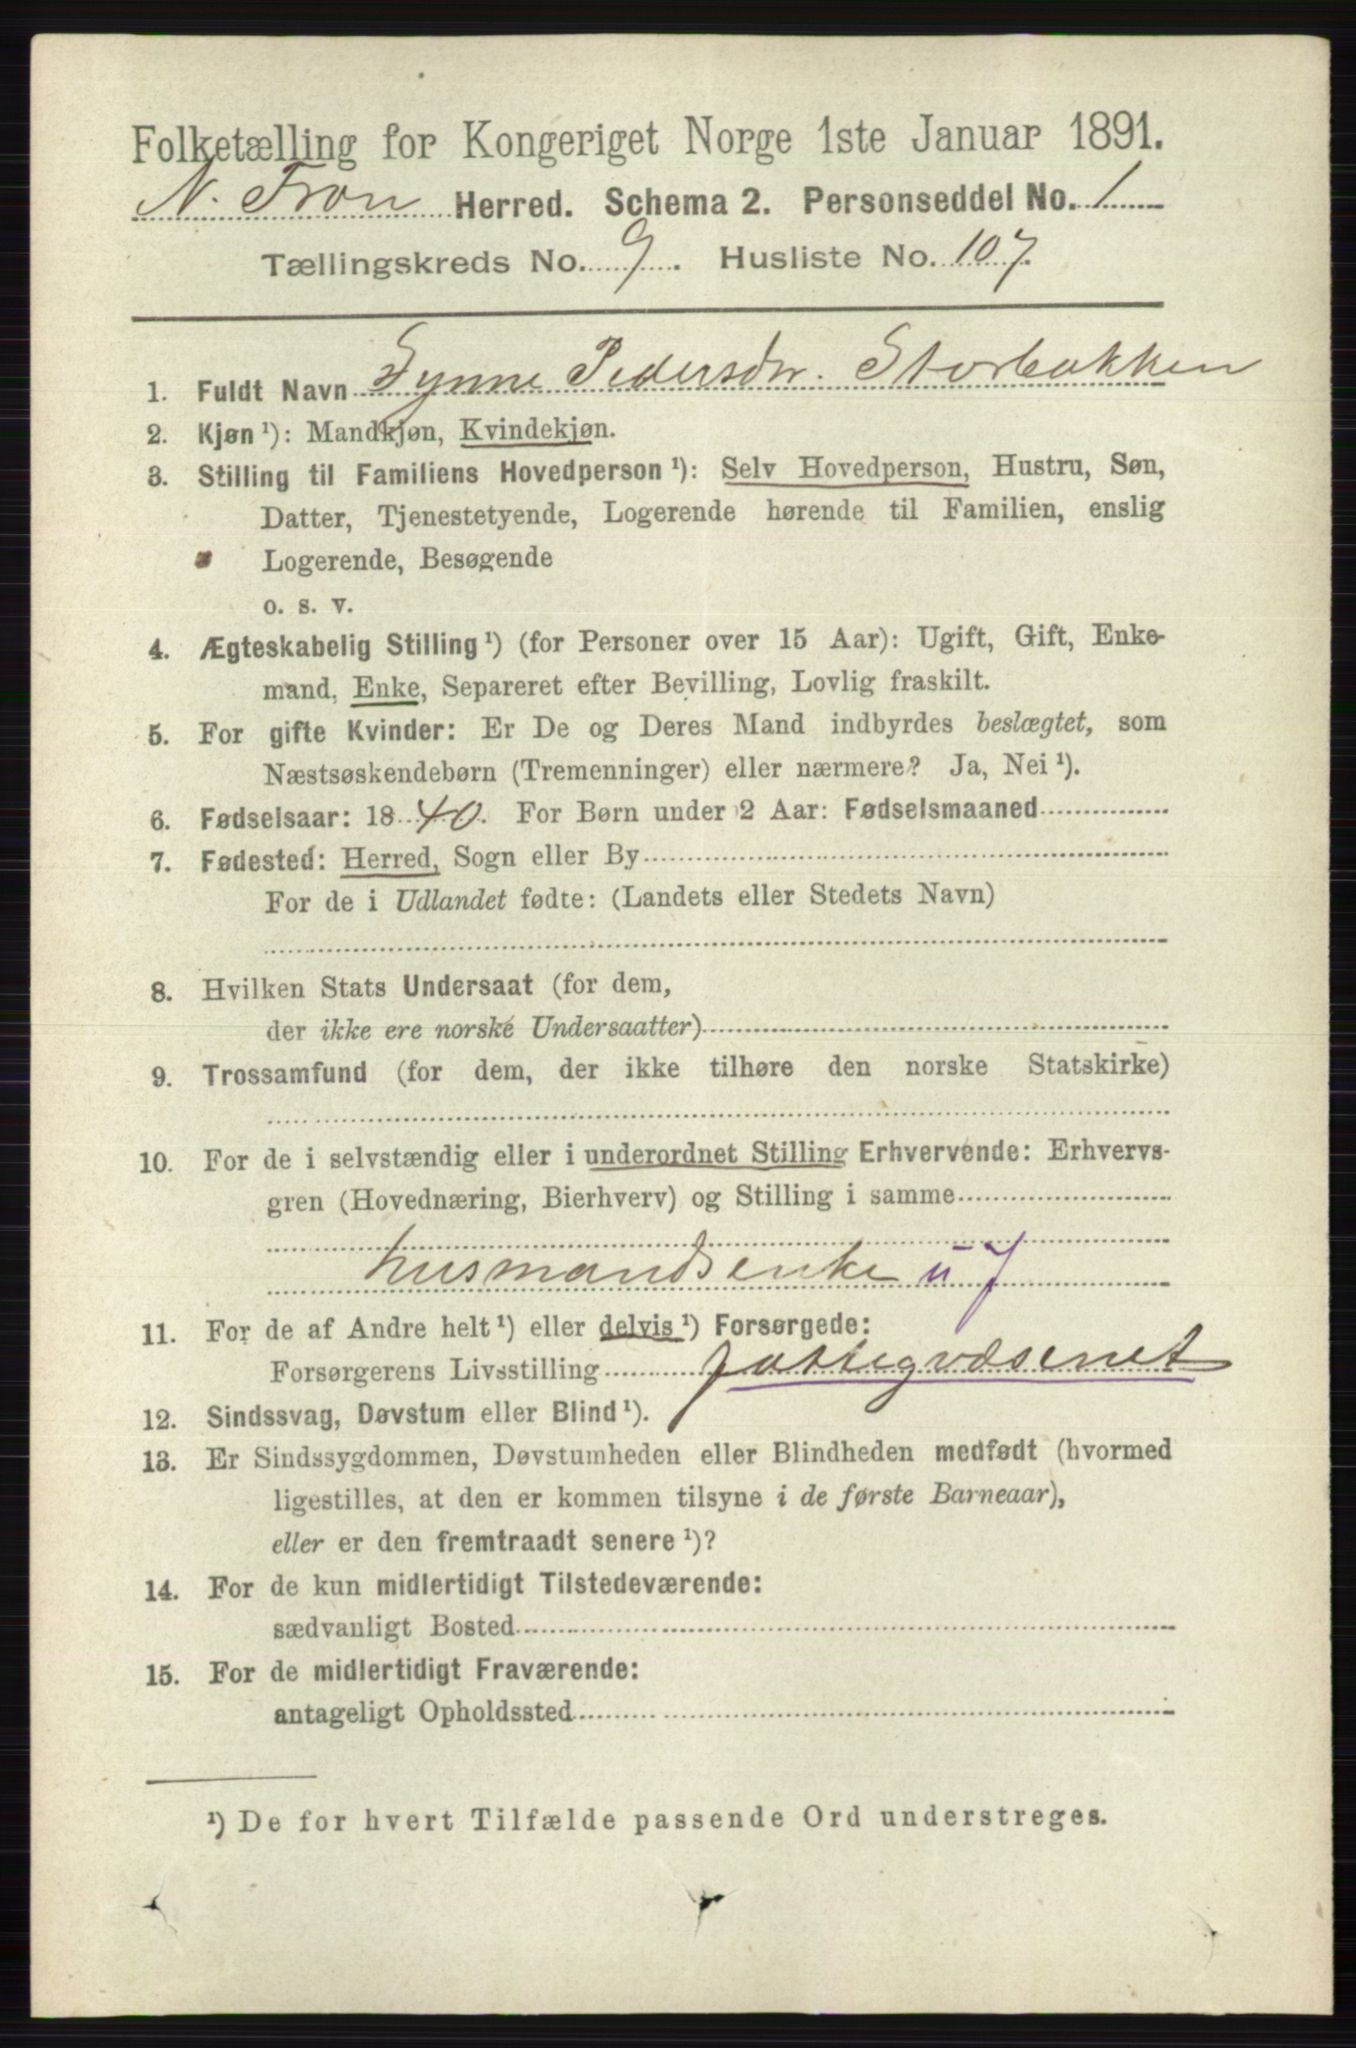 Folketælling for Kongeriget Norge 1ste Januar 1891.
N. Fron Herred. Schema 2. Personseddel No. 1
Tællingskreds No. 9. Husliste No. 107.
1. Fuldt Navn Synne Pedersdtr. Storbakken
2. Kjøn ¹): Mandkjøn, Kvindekjøn.
3. Stilling til Familiens Hovedperson ¹): Selv Hovedperson, Hustru, Søn,
Datter, Tjenestetyende, Logerende hørende til Familien, enslig
Logerende, Besøgende
o. s. v.
4. Ægteskabelig Stilling ¹) (for Personer over 15 Aar): Ugift, Gift, Enke-
mand, Enke, Separeret efter Bevilling, Lovlig fraskilt.
5. For gifte Kvinder: Er De og Deres Mand indbyrdes beslægtet, som
Næstsøskendebørn (Tremenninger) eller nærmere? Ja, Nei ¹).
6. Fødselsaar: 1840. For Børn under 2 Aar: Fødselsmaaned
7. Fødested: Herred, Sogn eller By
For de i Udlandet fødte: (Landets eller Stedets Navn)
8. Hvilken Stats Undersaat (for dem,
der ikke ere norske Undersaatter)
9. Trossamfund (for dem, der ikke tilhøre den norske Statskirke)
10. For de i selvstændig eller i underordnet Stilling Erhvervende: Erhvervs-
gren (Hovednæring, Bierhverv) og Stilling i samme
husmandsenke u J
11. For de af Andre helt ¹) eller delvis ¹) Forsørgede:
Forsørgerens Livsstilling fattigvæsenet
12. Sindssvag, Døvstum eller Blind ¹).
13. Er Sindssygdommen, Døvstumheden eller Blindheden medfødt (hvormed
ligestilles, at den er kommen tilsyne i de første Barneaar),
eller er den fremtraadt senere ¹)?
14. For de kun midlertidigt Tilstedeværende:
sædvanligt Bosted
15. For de midlertidigt Fraværende:
antageligt Opholdssted
¹) De for hvert Tilfælde passende Ord understreges.